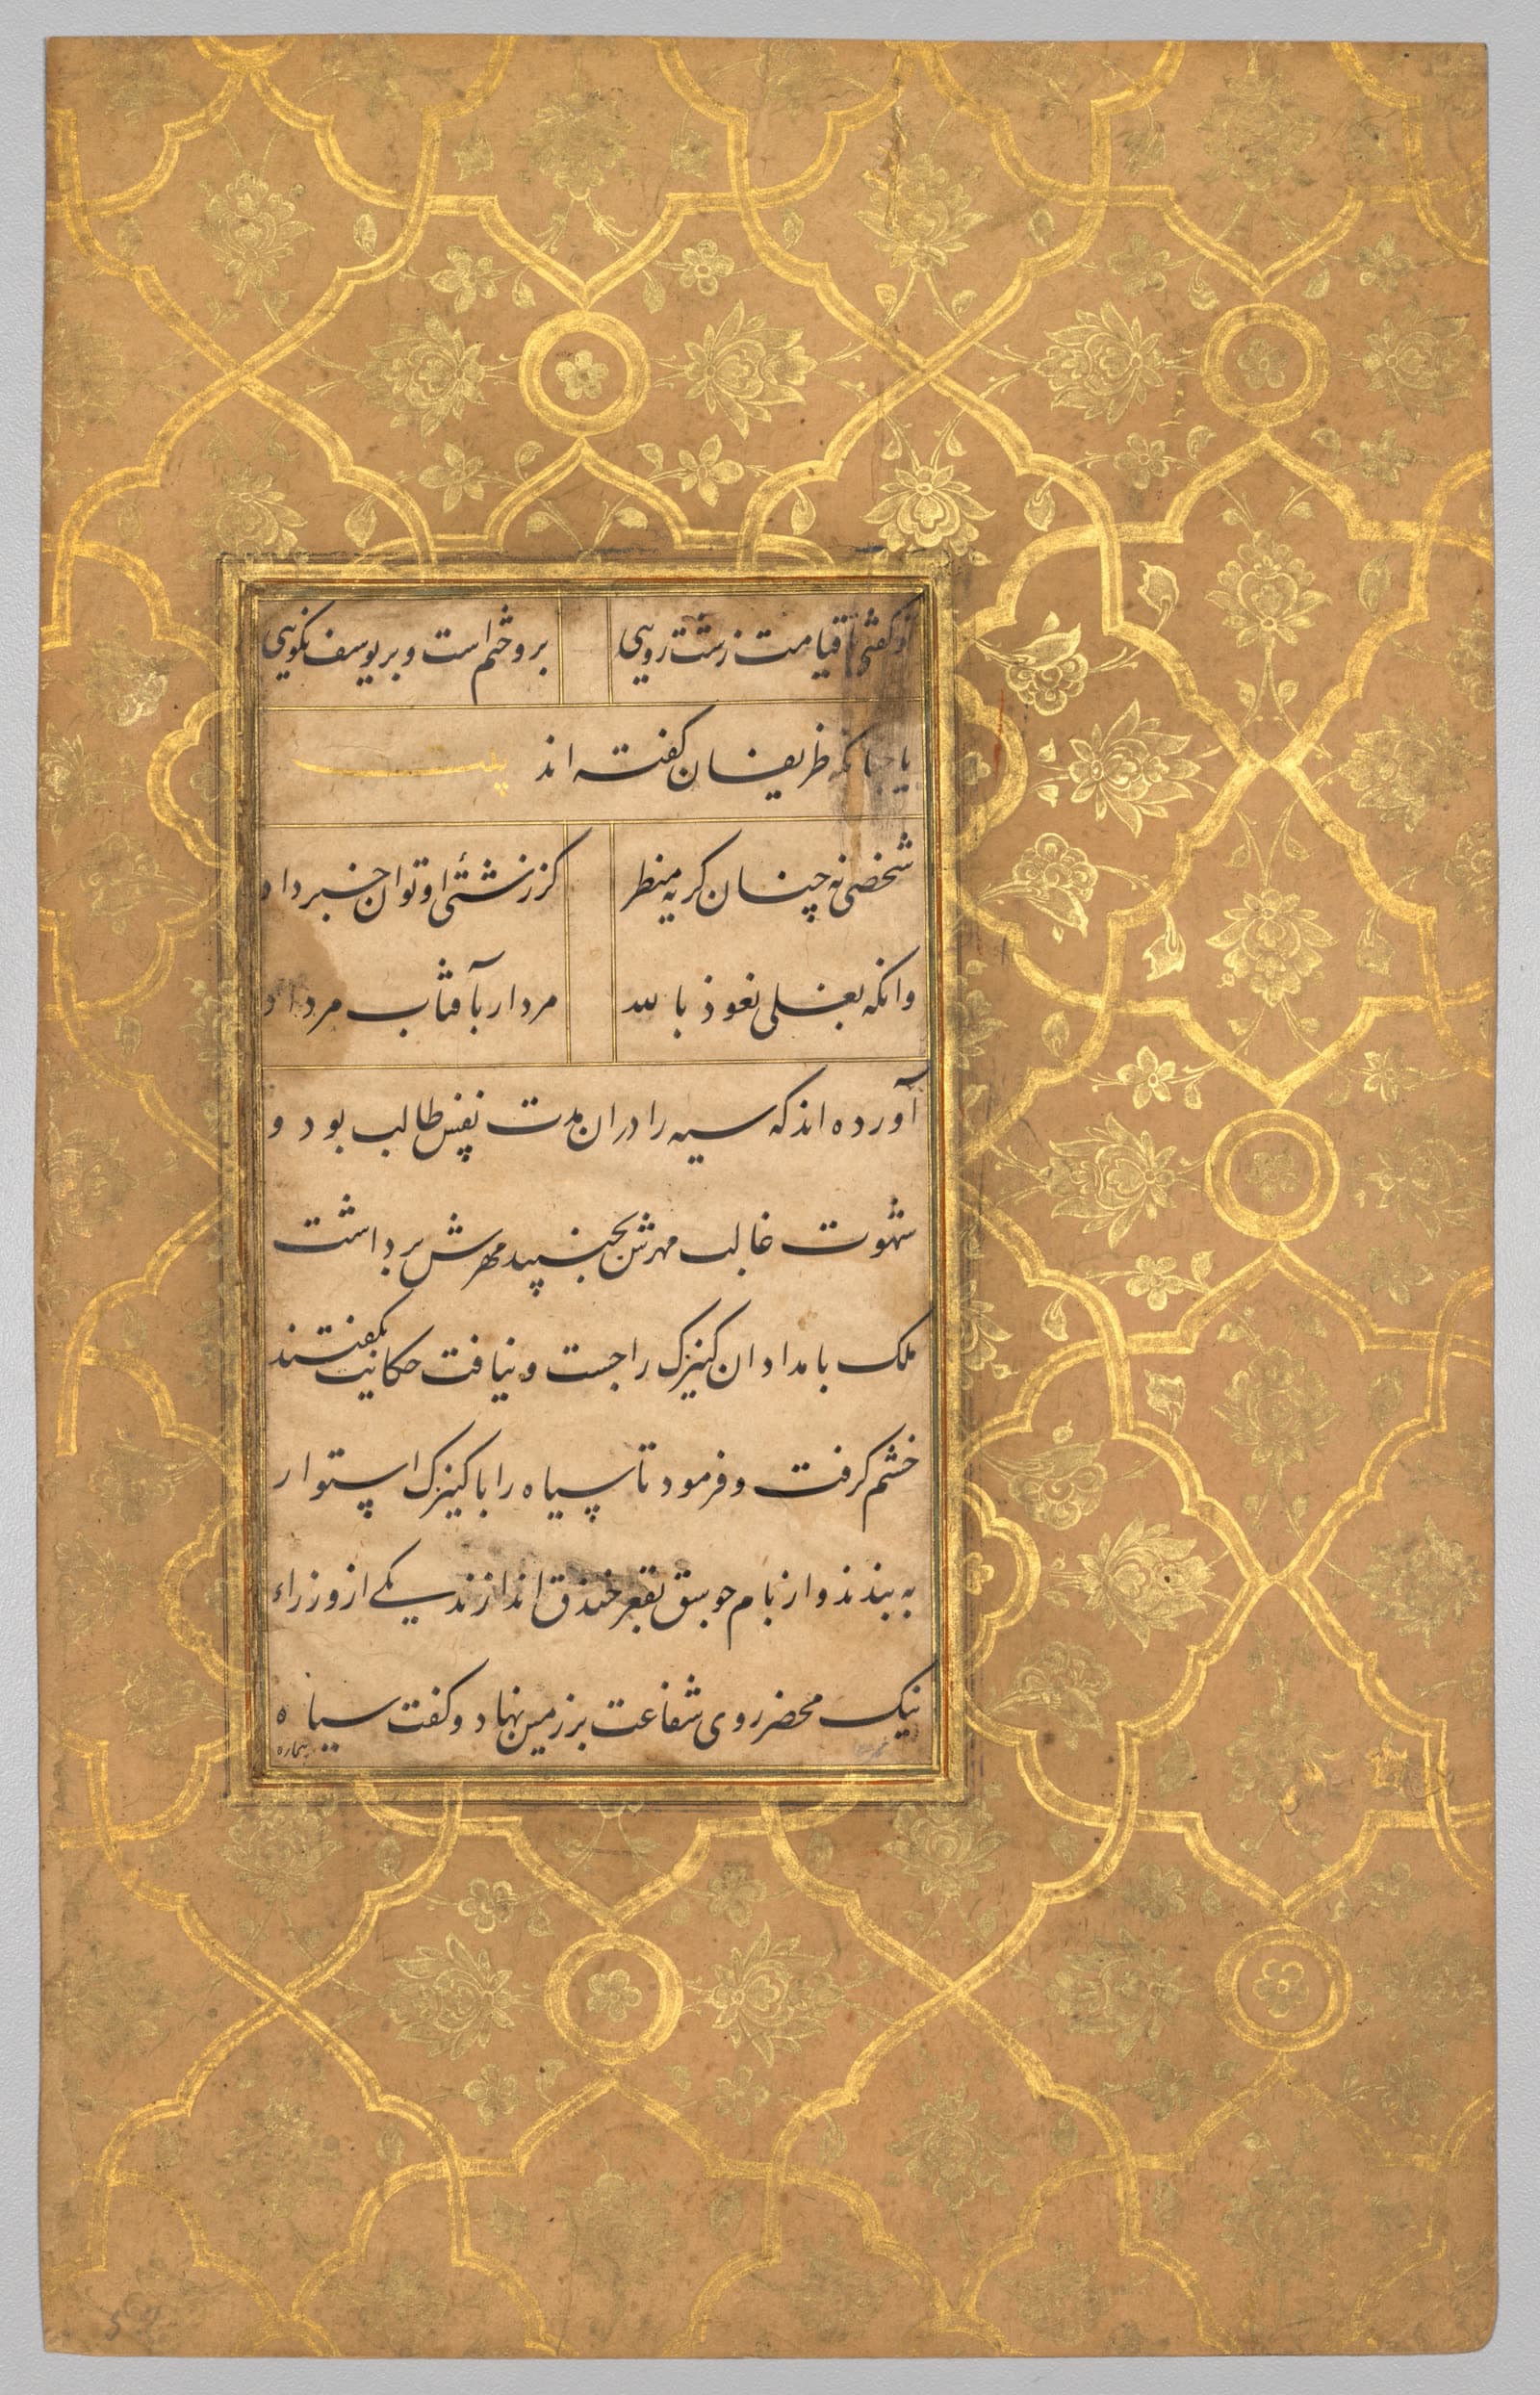 تو گفتی تا قیامت زشت رویی    برو ختم است و بر یوسف نکویی
یا چنانکه ظریفان گفته اند    بیت
شخصی نه چنان کریه منظر    کز زشتی او توان خبر داد
وانگه بغلی نعوذ بالله    مردار بآفتاب مرداد
آورده اند که سیه را در ان مدت نفس طالب بود و
شهوت غالب مهرش بجنبید مهرش برداشت
ملک بامدادان کنیزک را جست و نیافت حکایت بگفتند
خشم گرفت و فرمود تا سیاه را با کنیزک استوار
به بندند و از بام جوسق بقعر خندق اندازند یکی از وزراء
نیک محضر روی شفاعت بر زمین نهاد و گفت سیاه
بیچاره